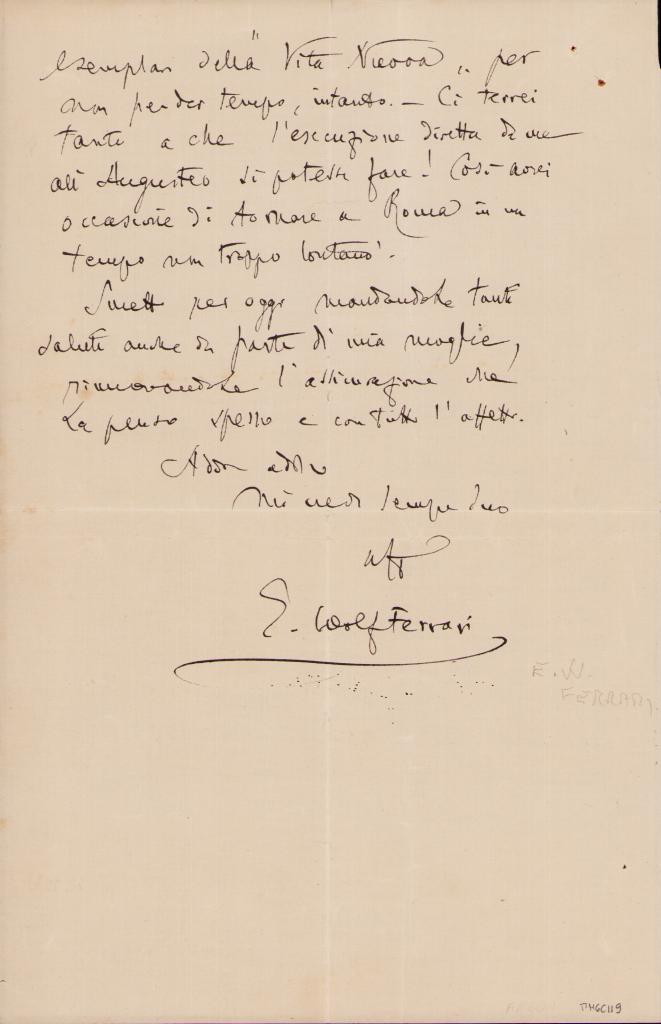 esemplari della "Vita Nuova" per
non perder tempo, intanto. — Ci terrei
tanto a che l'esecuzione diretta da me
all' Augusteo si potesse fare! Così avrei
occasione di tornare a Roma in un
tempo non troppo lontano.
Smetto per oggi mandandole tanti
saluti anche da parte di mia moglie,
rinnovandole l'assicurazione che
La penso spesso e con tutto l'affetto.
Addio addio
Mi creda sempre Suo
aff
E. Wolf Ferrari
E. W.
FERRARI.